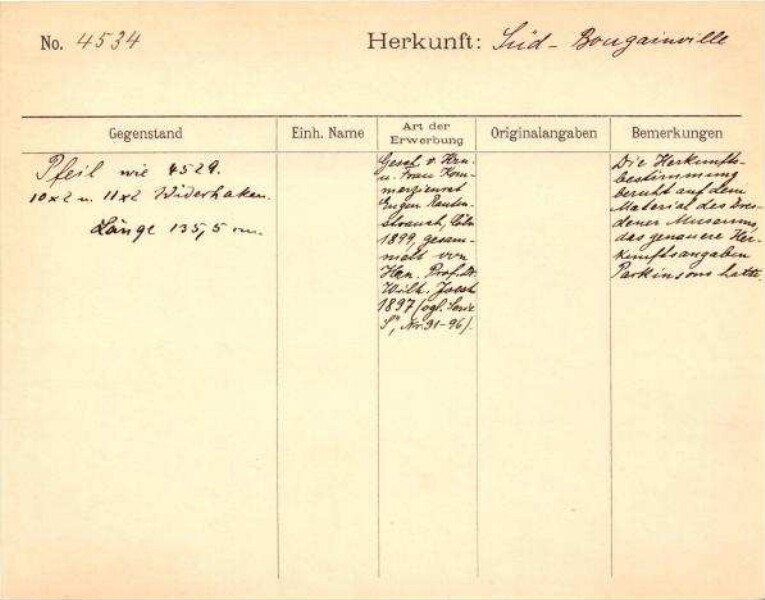 No. 4534
Herkunft: Süd-Bougainville
Gegenstand
Einh. Name
Art der
Erwerbung
Originalangaben
Bemerkungen
Pfeil wie 4529.
10x2 u. 11x2 Widerhaken.
Länge 135,5 cm.
Gesch. v. Hrn.
u. Frau Kom-
merzienrat
Eugen Rauten-
strauch, Cöln
1899, gesam-
melt von
Hrn. Prof. Dr.
Wilh. Joest
1897 (vgl. Serie
S", Nr. 91-96).
Die Herkunfts-
bestimmung
beruht auf dem
Material des Dres-
dener Museums,
das genauere Her-
kunftsangaben
Parkinsons hatte.